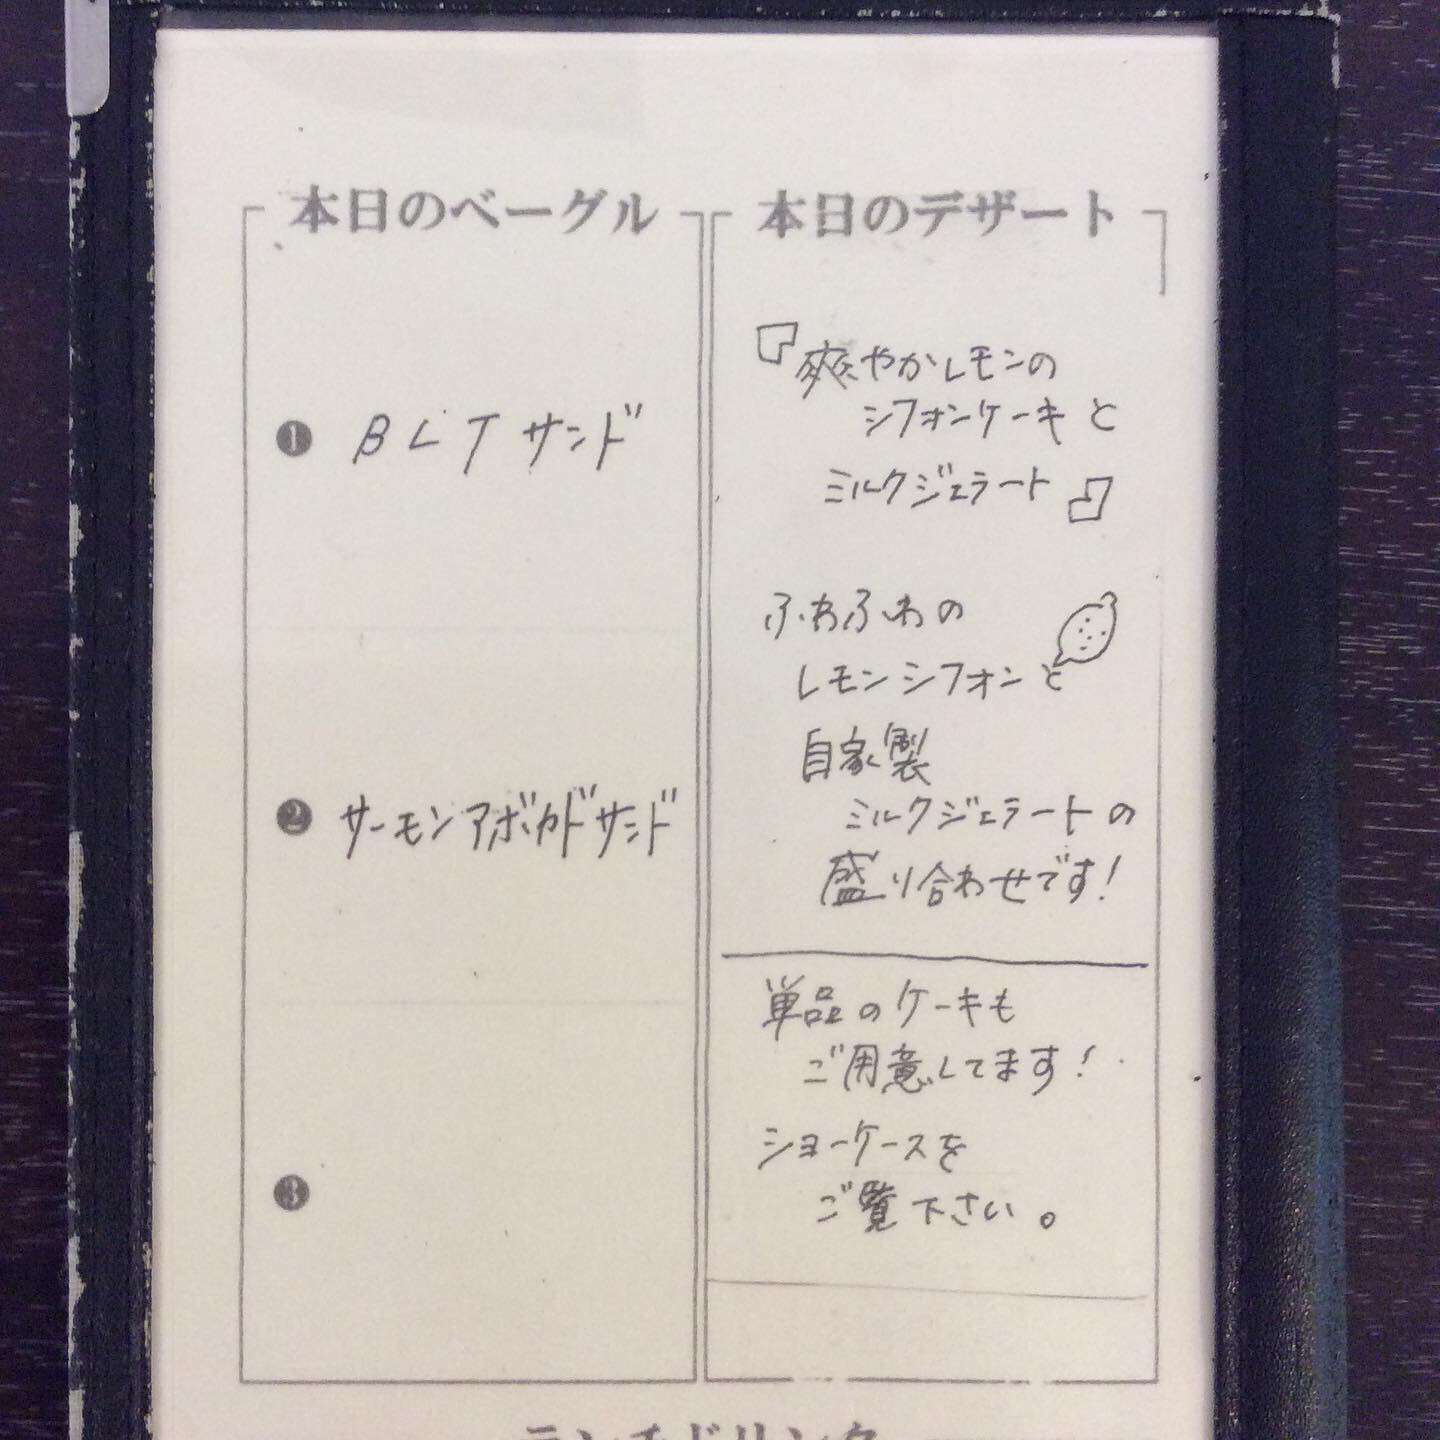 本日のベーグル
❶ BLTサンド
❷ サーモンアボカドサンド
❸
本日のデザート
『爽やかレモンの
シフォンケーキと
ミルクジェラート』
ふわふわの
レモンシフォンと
自家製
ミルクジェラートの
盛り合わせです!
単品のケーキも
ご用意してます!
ショーケースを
ご覧下さい。
ランチドリンク